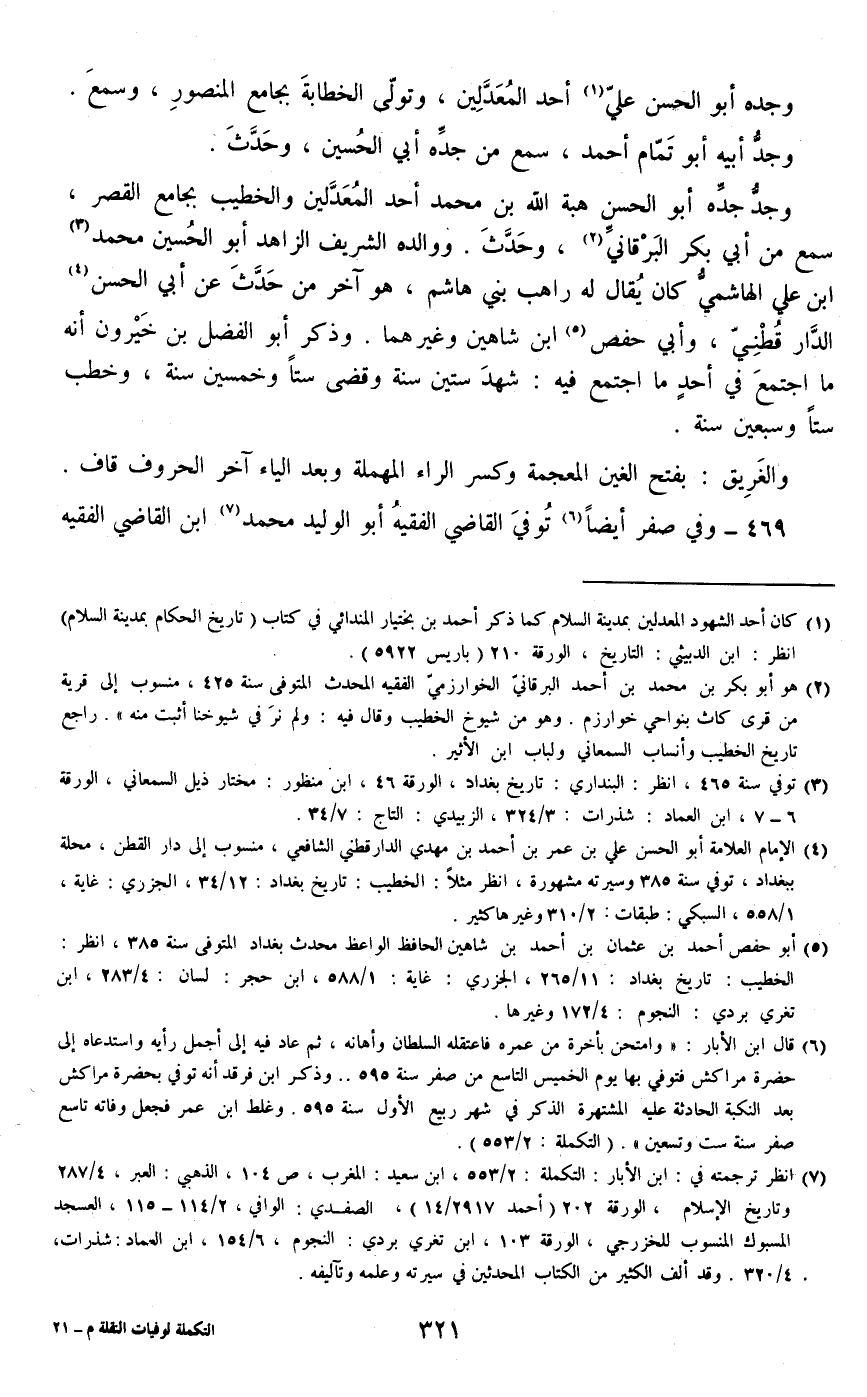 وجده أبو الحسن عليّ(١) أحد المُعَدَّلِين ، وتولّى الخطابةَ بجامع المنصورِ ، وسمعَ .
وجدُّ أبيه أبو تَمّام أحمد ، سمع من جدِّه أبي الحُسين ، وحَدَّثَ .
وجدُّ جدِّه أبو الحسنِ هبة الله بن محمد أحد المُعَدَّلين والخطيب بجامع القصر ،
سمع من أبي بكر البَرْقانيِّ(٢) ، وحَدَّثَ . ووالده الشريف الزاهد أبو الحُسين محمد(٣)
ابن علي الهاشميُّ كان يُقال له راهب بني هاشم ، هو آخر من حَدَّثَ عن أبي الحسن(٤)
الدَّار قُطْنِيّ ، وأبي حفص(٥) ابن شاهين وغيرهما . وذكر أبو الفضل بن خَيْرون أنه
ما اجتمعَ في أحدٍ ما اجتمع فيه : شهدَ ستين سنة وقضى ستاً وخمسين سنة ، وخطب
ستاً وسبعين سنة .
والغَرِيق : بفتح الغين المعجمة وكسر الراء المهملة وبعد الياء آخر الحروف قاف .
٤٦٩ ــ وفي صفر أيضاً(٦) تُوفيَ القاضي الفقيهُ أبو الوليد محمد(٧) ابن القاضي الفقيه
(١) كان أحد الشهود المعدلين بمدينة السلام كما ذكر أحمد بن بختيار المندائي في كتاب ( تاريخ الحكام بمدينة السلام)
انظر : ابن الدبيثي : التاريخ ، الورقة ٢١٠ ( باريس ٥٩٢٢ ) .
(٢) هو أبو بكر بن محمد بن أحمد البرقانيّ الخوارزميّ الفقيه المحدث المتوفى سنة ٤٢٥ ، منسوب إلى قرية
من قرى كاث بنواحي خوارزم . وهو من شيوخ الخطيب وقال فيه : ولم نرَ في شيوخنا أثبت منه » . راجع
تاريخ الخطيب وأنساب السمعاني ولباب ابن الأثير .
(٣) توفي سنة ٤٦٥ ، انظر : البنداري : تاريخ بغداد ، الورقة ٤٦ ، ابن منظور : مختار ذيل السمعاني ، الورقة
٦ ــ ٧ ، ابن العماد : شذرات : ٣٢٤/٣ ، الزبيدي : التاج : ٣٤/٧ .
(٤) الإمام العلامة أبو الحسن علي بن عمر بن أحمد بن مهدي الدارقطني الشافعي ، منسوب إلى دار القطن ، محلة
ببغداد ، توفي سنة ٣٨٥ وسيرته مشهورة ، انظر مثلاً : الخطيب : تاريخ بغداد : ٣٤/١٢ ، الجزري : غاية ،
٥٥٨/١ ، السبكي : طبقات : ٣١٠/٢ وغير هاكثير .
(٥) أبو حفص أحمد بن عثمان بن أحمد بن شاهين الحافظ الواعظ محدث بغداد المتوفى سنة ٣٨٥ ، انظر :
الخطيب : تاريخ بغداد : ٢٦٥/١١ ، الجزري : غاية : ٥٨٨/١ ، ابن حجر : لسان : ٢٨٣/٤ ، ابن
تغري بردي : النجوم : ١٧٢/٤ وغيرها .
(٦) قال ابن الأبار : « وامتحن بأخرة من عمره فاعتقله السلطان وأهانه ، ثم عاد فيه إلى أجمل رأيه واستدعاه إلى
حضرة مراكش فتوفي بها يوم الخميس التاسع من صفر سنة ٥٩٥ .. وذكر ابن فرقد أنه توفي بحضرة مراكش
بعد النكبة الحادثة عليه المشتهرة الذكر في شهر ربيع الأول سنة ٥٩٥ . وغلط ابن عمر فجعل وفاته تاسع
صفر سنة ست وتسعين » . ( التكملة : ٥٥٣/٢ ) .
(٧) انظر ترجمته في : ابن الأبار : التكملة : ٥٥٣/٢ ، ابن سعيد : المغرب ، ص ١٠٤ ، الذهبي : العبر ، ٢٨٧/٤
وتاريخ الإسلام ، الورقة ٢٠٢ ( أحمد ١٤/٢٩١٧ ) ، الصفدي : الوافي ، ١١٤/٢ ــ ١١٥ ، العسجد
المسبوك المنسوب للخزرجي ، الورقة ١٠٣ ، ابن تغري بردي : النجوم ، ١٥٤/٦ ، ابن العماد : شذرات،
٣٢٠/٤ . وقد ألف الكثير من الكتاب المحدثين في سيرته وعلمه وتآليفه .
٣٢١
التكملة لوفيات النقلة م ــ ٢١